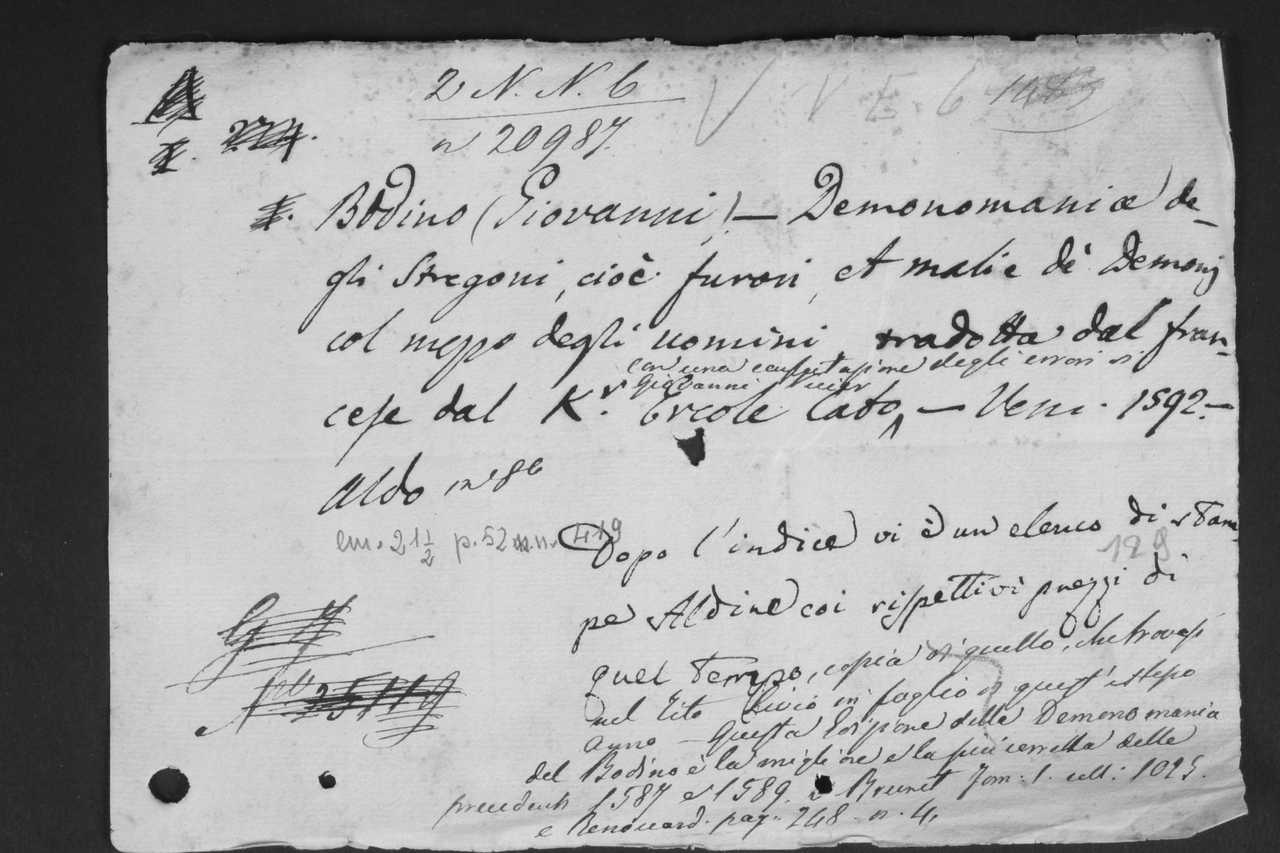 2 N. N. 6
V V E. 6
n 20987.
Bodino (Giovanni) — Demonomania de-
gli Stregoni, cioè furori, et malie dè Demonj
col mezzo degli uomini tradotta dal fran-
con una confutazione degli errori di
Giovanni Vuier
cese dal K.r Ercole Cato, — Ven. 1592. —
Aldo in 8°
cm. 21 1/2 p. 52 n.n. 419
Dopo l'indice vi è un elenco di stam-
129
pe Aldine coi rispettivi prezzi di
quel tempo, copia di quello, che trovasi
nel Tito Livio in foglio di quest'istesso
anno — Questa Edizione della Demonomania
del Bodino è la migliore e la più corretta delle
precedenti 1587 e 1589. v Brunet Tom: 1. coll: 1025.
e Renouard. pag. 248. n. 4.
No 25119